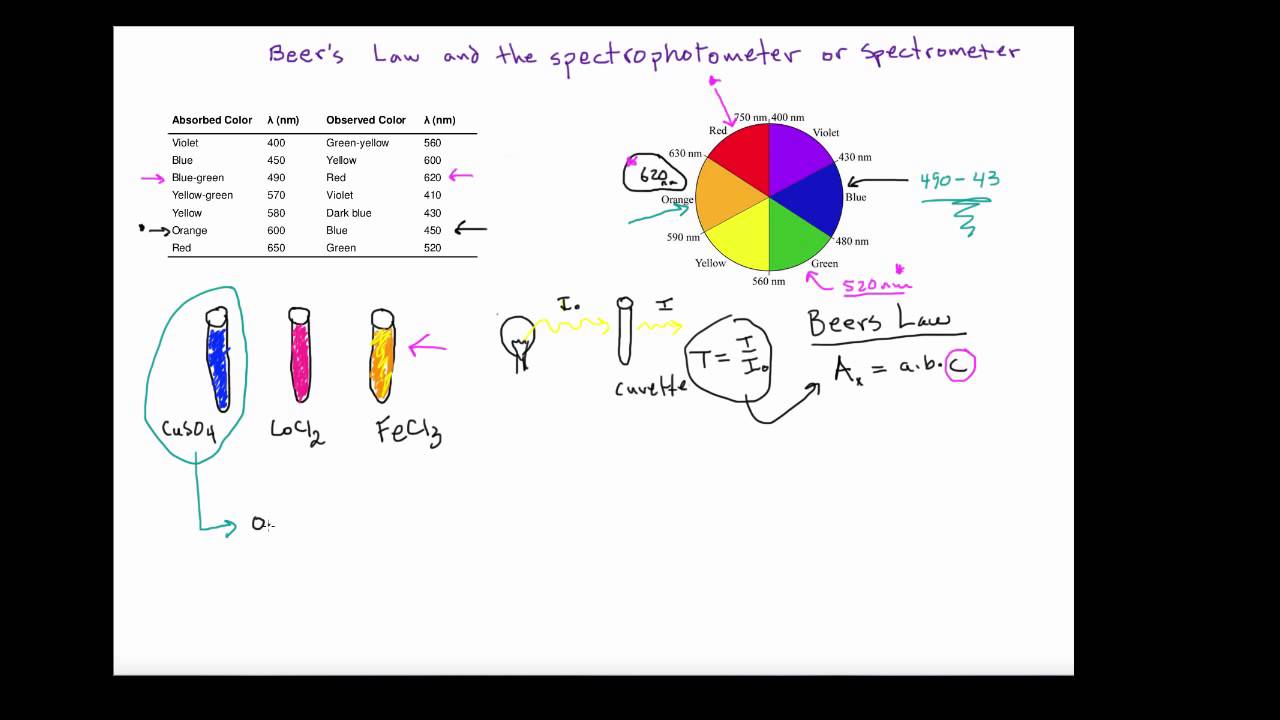 Beer's Law and the spectrophotometer or spectrometer
Absorbed Color λ (nm) Observed Color λ (nm)
Violet 400 Green-yellow 560
Blue 450 Yellow 600
Blue-green 490 Red 620
Yellow-green 570 Violet 410
Yellow 580 Dark blue 430
Orange 600 Blue 450
Red 650 Green 520
750 nm 400 nm
Red Violet
630 nm 430 nm
620 nm
490-43
Orange Blue
590 nm 480 nm
Yellow Green
560 nm
520 nm*
I₀ I
Beers Law
T = I/I₀
Aₓ = a.b.c
Cuvette
CuSO4 CoCl2 FeCl3